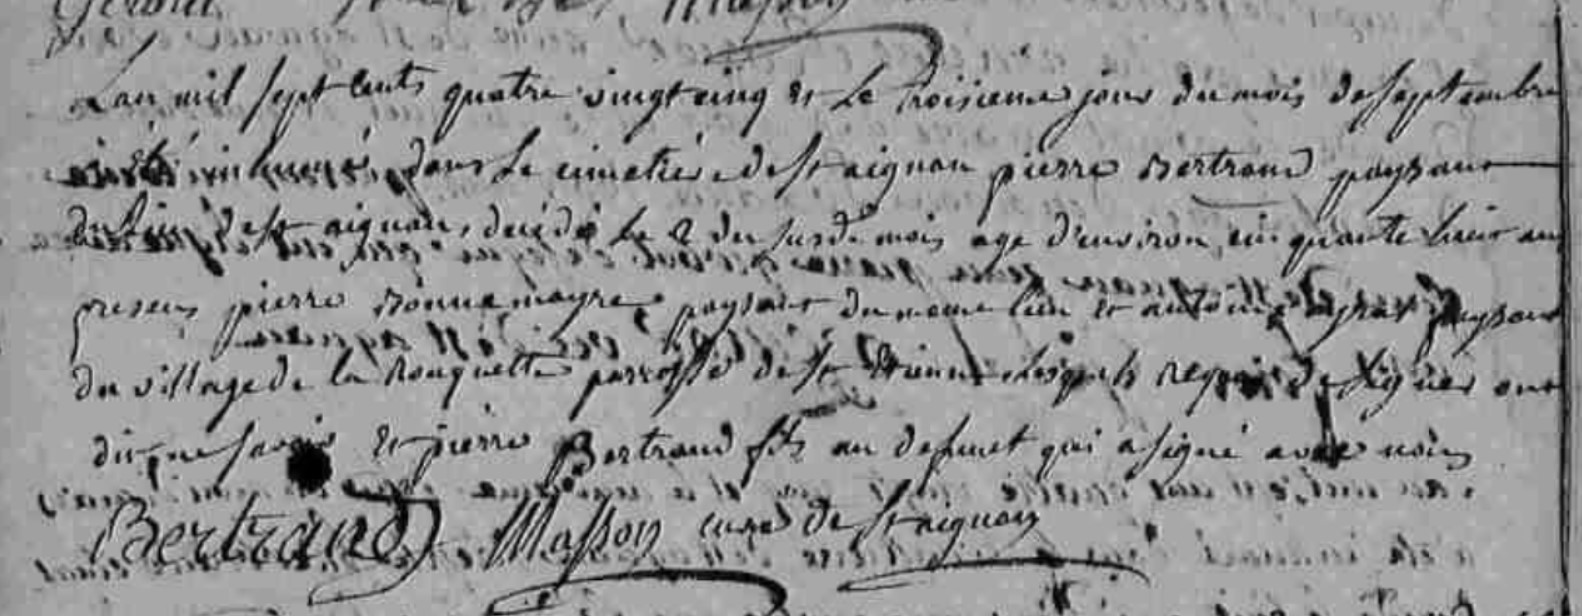 Masson
L'an mil sept cents quatre vingt cinq et le troisieme jour du mois de septembre
a été inhumé dans le cimetière de st aignan pierre Bertrand paysant
du lieu de st aignan, decédé le 2 du susd. mois age d'environ cinquante huit ans
presens pierre Bonnemayre paysant du meme lieu et antoine paysant
du village de la Rouquette parroisse de st Etienne lesquels requis de signer ont
dit ne savoir et pierre Bertrand fils au defunct qui a signé avec nous
Bertrand Masson curé de st aignan